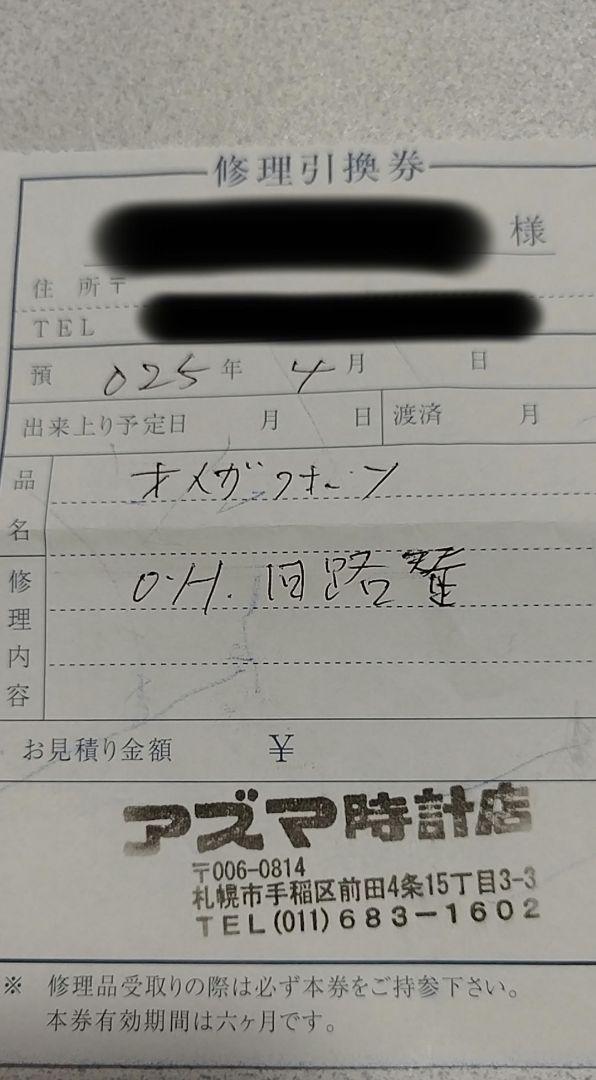 修理引換券
様
住所〒
TEL
預 025年 4月 日
出来上り予定日 月 日 渡済 月
品名 オメガ クオーツ
修理内容 O.H. 回路
お見積り金額 ¥
アズマ時計店
〒006-0814
札幌市手稲区前田4条15丁目3-3
TEL(011)683-1602
※ 修理品受取りの際は必ず本券をご持参下さい。
本券有効期間は六ヶ月です。